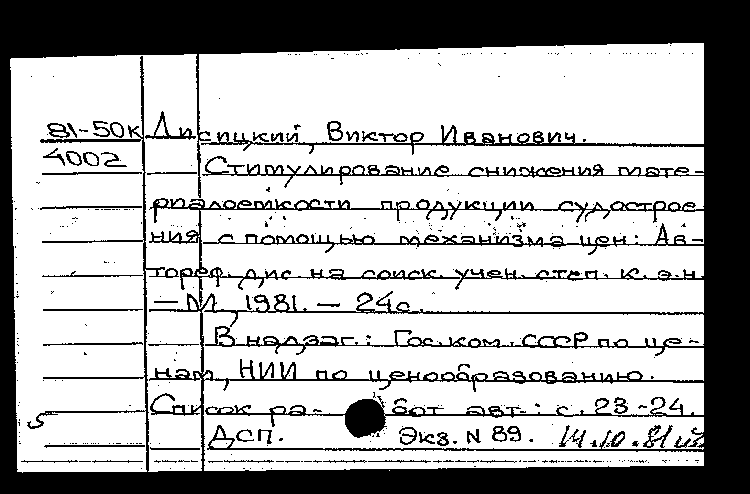 81-50к Лисицкий, Виктор Иванович.
4002 Стимулирование снижения мате-
риалоемкости продукции судострое
ния с помощью механизма цен: Ав-
тореф. дис. на соиск. учен. степ. к.э.н.
— М, 1981. — 24с.
В надзаг.: Гос.ком. СССР по це-
нам, НИИ по ценообразованию.
Список ра- бот авт.: с. 23-24.
ДСП. Экз. N 89. 14.10.81